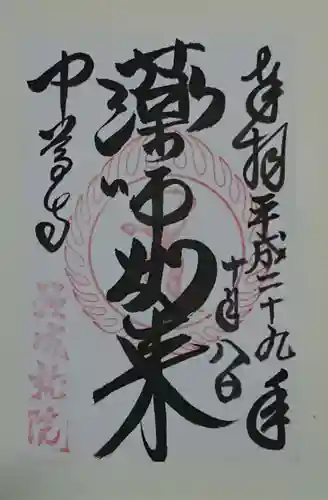 奉拝平成二十九年
十月八日
薬師如来
中尊寺